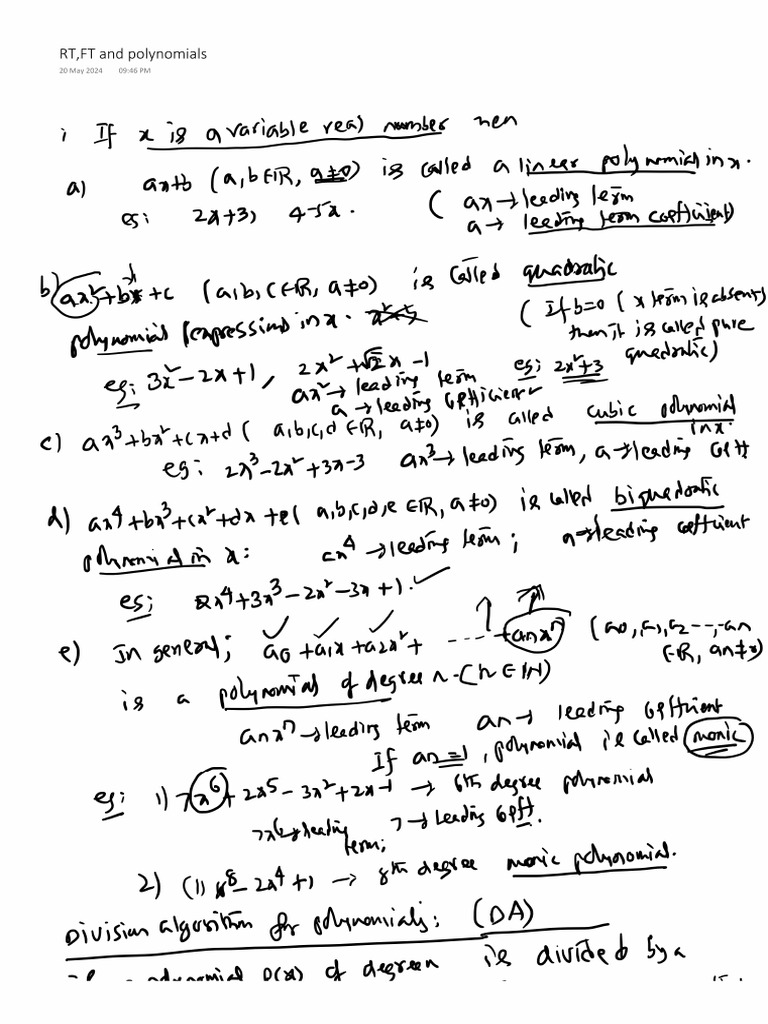 RT,FT and polynomials
20 May 2024 09:46 PM
i If x is a variable real number then
a) ax+b (a,b∈ℝ, a≠0) is called a linear polynomial in x.
eg: 2x+3, 4-5x. ( ax→leading term
a→ leading term coefficient)
b) ax²+bx+c (a,b,c∈ℝ, a≠0) is called quadratic
polynomial (expression) in x. ( If b=0 ( x term is absent)
then it is called pure
quadratic)
eg: 3x²-2x+1, 2x²+√2x-1 eg: 2x²+3
ax²→ leading term
a→leading coefficient
c) ax³+bx²+cx+d ( a,b,c,d ∈ℝ, a≠0) is called cubic polynomial
in x.
eg: 2x³-2x²+3x-3 ax³→leading term, a→leading coefft
d) ax⁴+bx³+cx²+dx+e( a,b,c,d,e∈ℝ, a≠0) is called biquadratic
polynomial in x: ax⁴→leading term; a→leading coefficient
eg; 2x⁴+3x³-2x²-3x+1.
e) In general; a₀+a₁x+a₂x²+ ---- +anxⁿ (a₀,a₁,a₂---,an
∈ℝ, an≠0)
is a polynomial of degree n.(n∈ℕ)
anxⁿ→leading term an→ leading coefficient
If an=1, polynomial is called monic
eg: 1) 7x⁶+2x⁵-3x²+2x-1 → 6th degree polynomial
7x⁶→leading term; 7→leading coefft.
2) (1)x⁸-2x⁴+1 → 8th degree monic polynomial.
Division algorithm for polynomials: (DA)
if a polynomial P(x) of degree n is divided by a